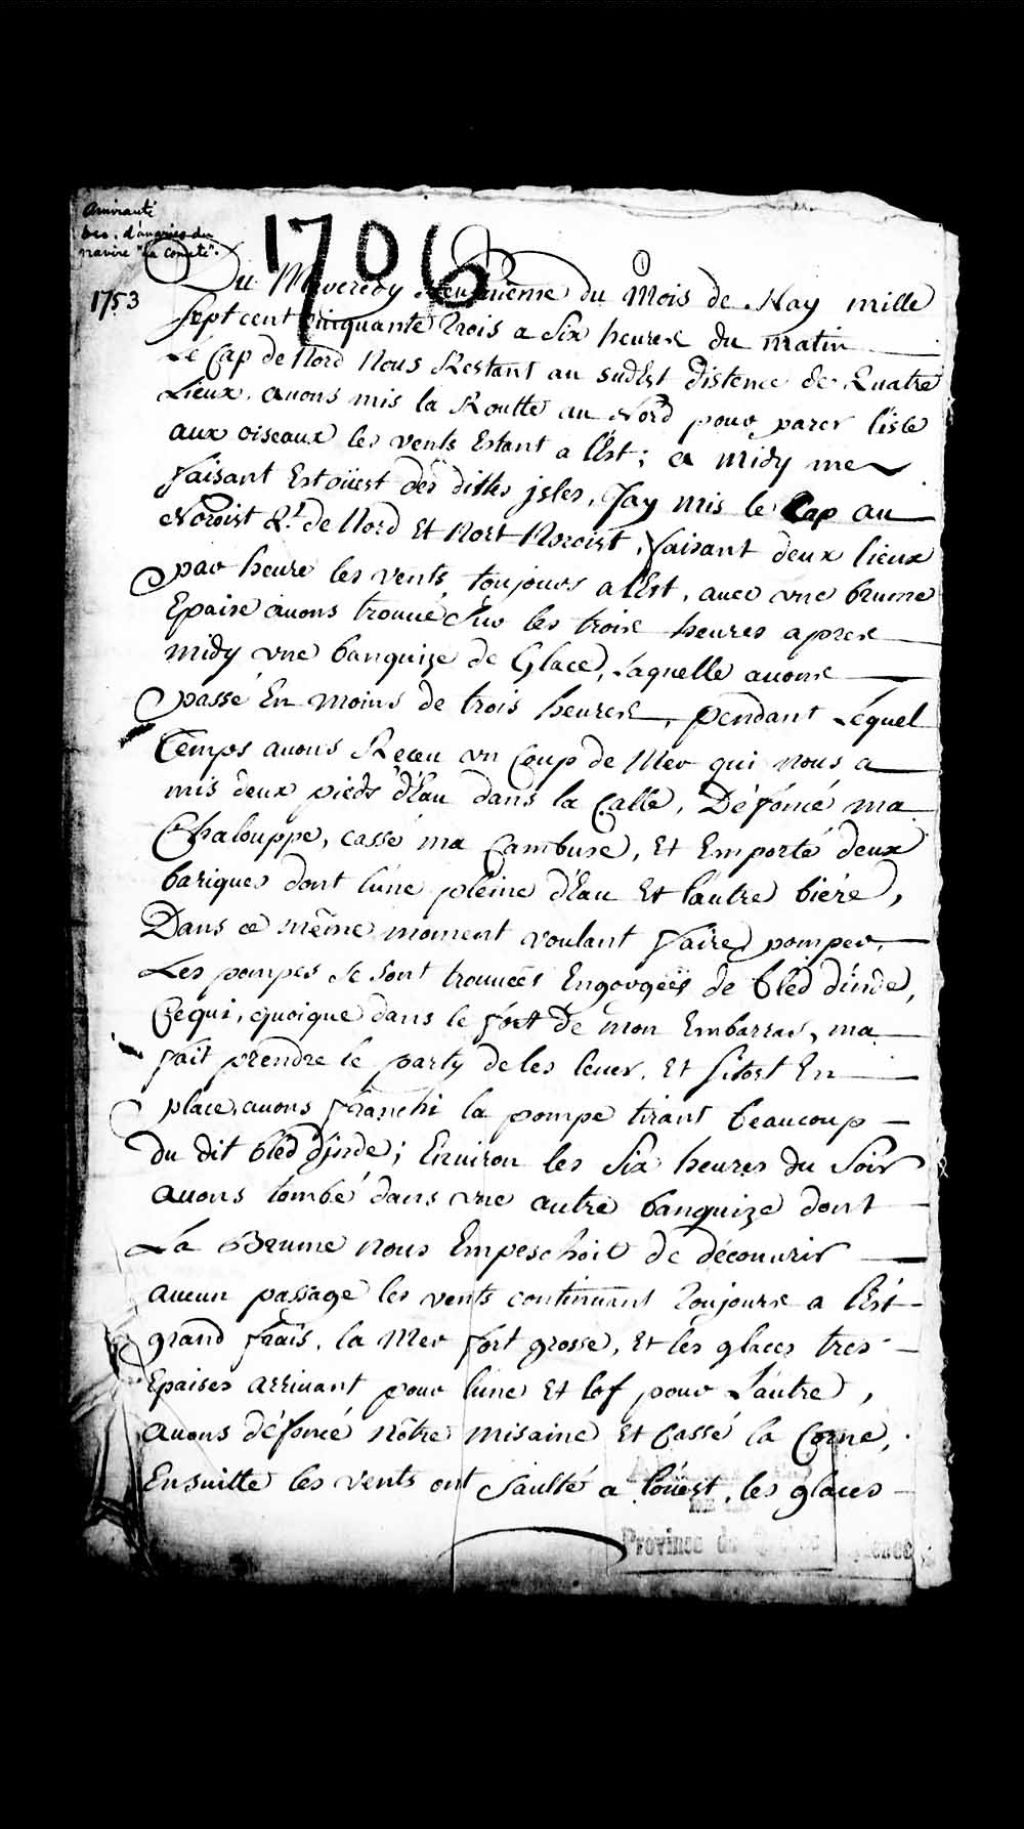 Amirauté
d'avaries du
navire "La Comète".
1753
1706
1
Du Mercredy neufviême du Mois de May mille
Sept cent cinquante trois a Six heures du matin
Le Cap de Nord Nous Restant au sudEst distence de Quatre
Lieux. avons mis la Routte au Nord pour parer l'isle
aux oiseaux les vents Estant a l'Est; a midy me
faisant Estoüest des dittes jsles, Jay mis le Cap au
Noroist Qt. de Nord Et Nort Noroist, faisant deux lieux
par heure les vents toujours a l'Est, avec une brume
Epaise avons trouvé Sur les trois heures apres
midy vne banquize de Glace, Laquelle avons
passé En moins de trois heures, pendant Léquel
Temps avons Receu vn Coup de Mer qui nous a
mis deux pieds d'Eau dans la Calle, Défoncé ma
Chalouppe, cassé ma Cambuse, Et Emporté deux
bariques dont lúne pleine d'Eau Et l'autre biére,
Dans ce même moment voulant faire pomper,
Les pompes Se sont trouvées Engorgéës de bled dinde,
Cequi, quoique dans le fort de mon Embarras, ma
fait prendre le party de les lever, Et sitost En
place, avons franchi la pompe tirant beaucoup
du dit bled d'jnde; Environ les Six heures du Soir
avons tombé dans vne autre banquize dont
La Brume nous Empeschoit de découvrir
aucun passage les vents continuant Toujours a l'Est
grand frais, la Mer fort grosse, Et les glaces tres
Epaises arrivant pour lune Et lof pour Láutre,
avons défoncé nôtre misaine Et Cassé la Corne,
Ensuitte les vents ont Saulté a l'oüest, les glaces
Province de